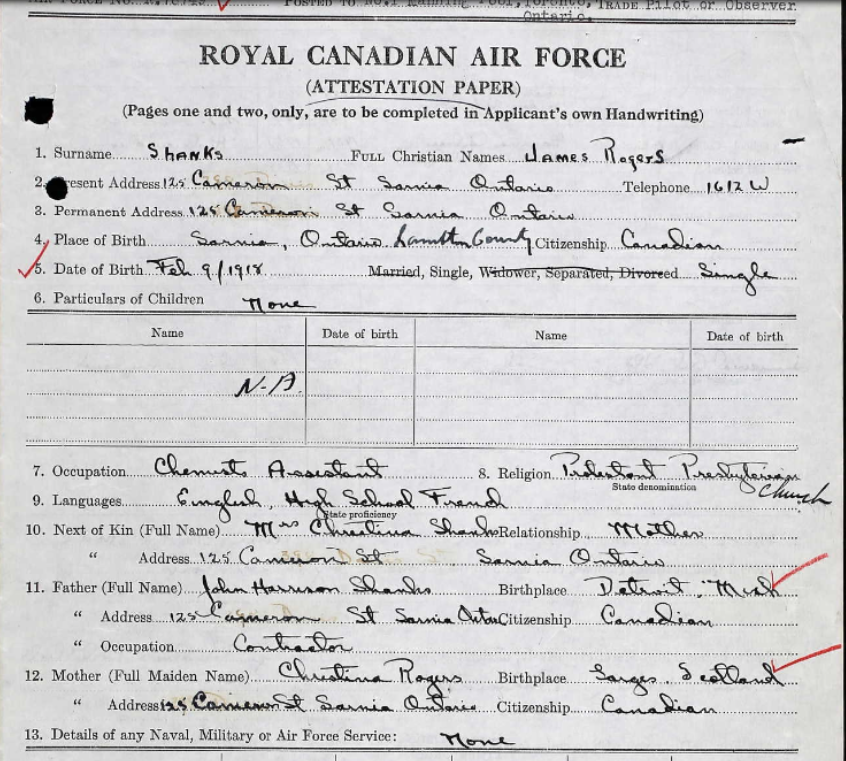 Posted to No.1 Manning Pool, Toronto, Trade Pilot or Observer
Ontario.
ROYAL CANADIAN AIR FORCE
(ATTESTATION PAPER)
(Pages one and two, only, are to be completed in Applicant's own Handwriting)
1. Surname Shanks Full Christian Names James Rogers
2. Present Address 125 Cameron St Sarnia Ontario Telephone 1612 W
3. Permanent Address 125 Cameron St Sarnia Ontario
4. Place of Birth Sarnia, Ontario Lambton County Citizenship Canadian
5. Date of Birth Feb 9/1918 Married, Single, Widower, Separated, Divorced Single
6. Particulars of Children None
Name Date of birth Name Date of birth
N.A.
7. Occupation Chemists Assistant 8. Religion Protestant Presbyterian
State denomination Church
9. Languages English, High School French
State proficiency
10. Next of Kin (Full Name) Mrs Christina Shanks Relationship Mother
" Address 125 Cameron St Sarnia Ontario
11. Father (Full Name) John Harrison Shanks Birthplace Detroit, Mich
" Address 125 Cameron St Sarnia Citizenship Canadian
" Occupation Contractor
12. Mother (Full Maiden Name) Christina Rogers Birthplace Scotland
" Address 125 Cameron St Sarnia Ontario Citizenship Canadian
13. Details of any Naval, Military or Air Force Service: None